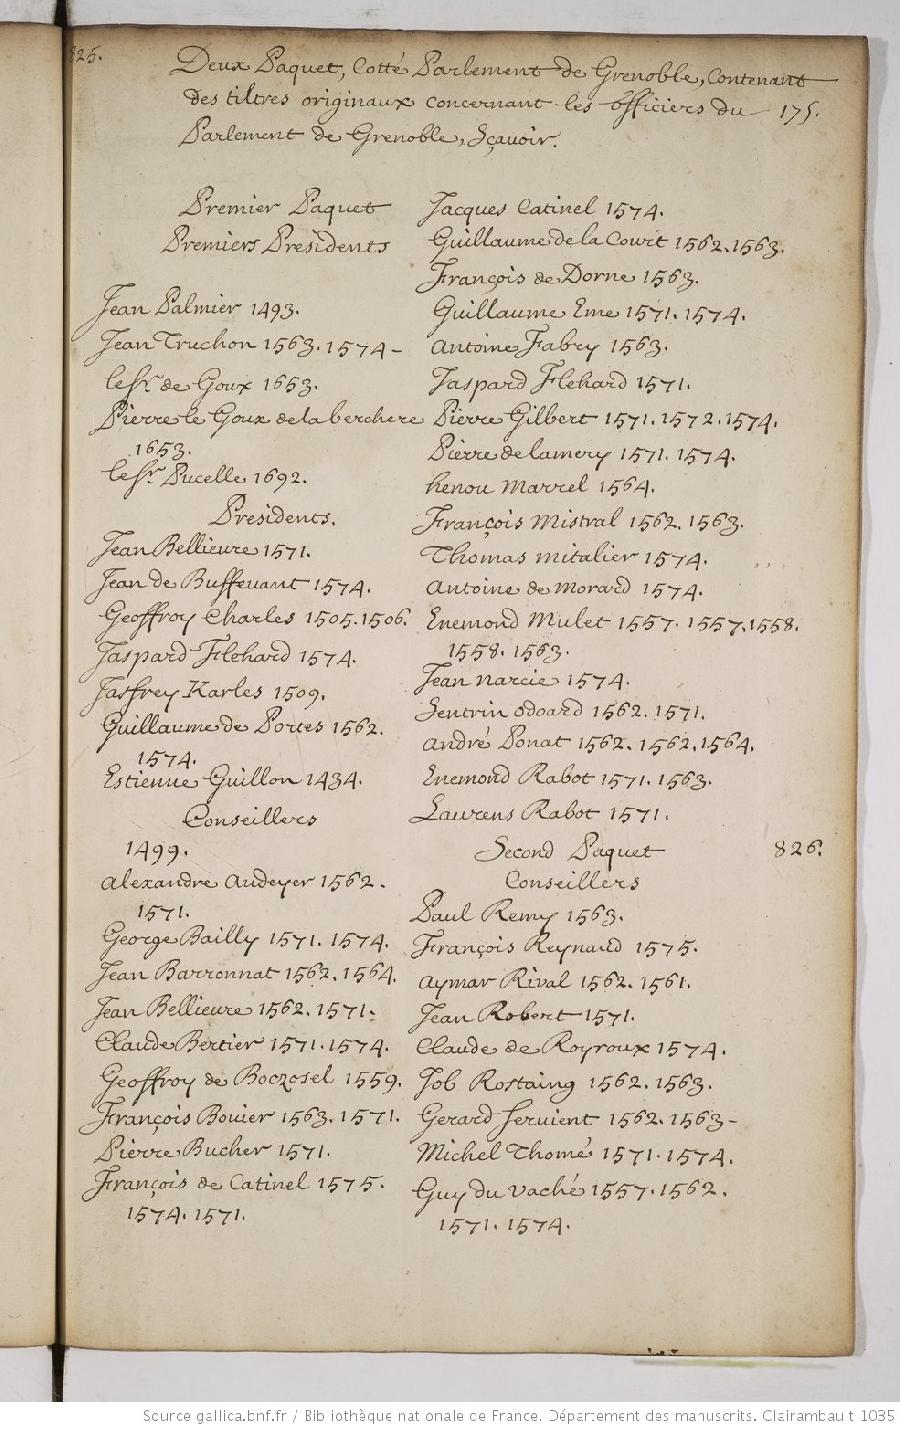 825.
Deux Paquet, Cotté Parlement de Grenoble, Contenant
des tiltres originaux concernant les officiers du
175.
Parlement de Grenoble, Sçavoir.
Premier Paquet
Premiers Presidents
Jean Palmier 1493.
Jean Truchon 1563. 1574-
le Sr. de Goux 1653.
Pierre le Goux de la berchere
1653.
le Sr. Pucelle 1692.
Presidents.
Jean Bellieure 1571.
Jean de Buffeuant 1574.
Geoffroy Charles 1505. 1506.
Jaspard Flehard 1574.
Jaffrey Karles 1509.
Guillaume de Portes 1562.
1574.
Estienne Guillon 1434.
Conseillers
1499.
Alexandre Audeyer 1562.
1571.
George Bailly 1571. 1574.
Jean Barronnat 1562. 1564.
Jean Bellieure 1562. 1571.
Claude Bertier 1571. 1574.
Geoffroy de Boczosel 1559.
François Bouier 1563. 1571.
Pierre Bucher 1571.
François de Catinel 1575.
1574. 1571.
Jacques Catinel 1574.
Guillaume de la Court 1562. 1563.
François de Dorne 1563.
Guillaume Eme 1571. 1574.
Antoine Fabry 1563.
Jaspard Flehard 1571.
Pierre Gilbert 1571. 1572. 1574.
Pierre de lamery 1571. 1574.
henou Marrel 1564.
François Mistral 1562. 1563.
Thomas mitalier 1574.
Antoine de Morard 1574.
Enemond Mulet 1557. 1557. 1558.
1558. 1563.
Jean narcie 1574.
Sentrin odoard 1562. 1571.
André Ponat 1562. 1562. 1564.
Enemond Rabot 1571. 1563.
Laurens Rabot 1571.
Second Paquet
826.
Conseillers
Paul Remy 1563.
François Reynaud 1575.
Aymar Rival 1562. 1561.
Jean Robert 1571.
Claude de Royroux 1574.
Job Rostaing 1562. 1563.
Gerard Seruient 1562. 1563-
Michel Thomé 1571. 1574.
Guy du Vaché 1557. 1562.
1571. 1574.
Source gallica.bnf.fr / Bibliothèque nationale de France. Département des manuscrits. Clairambault 1035